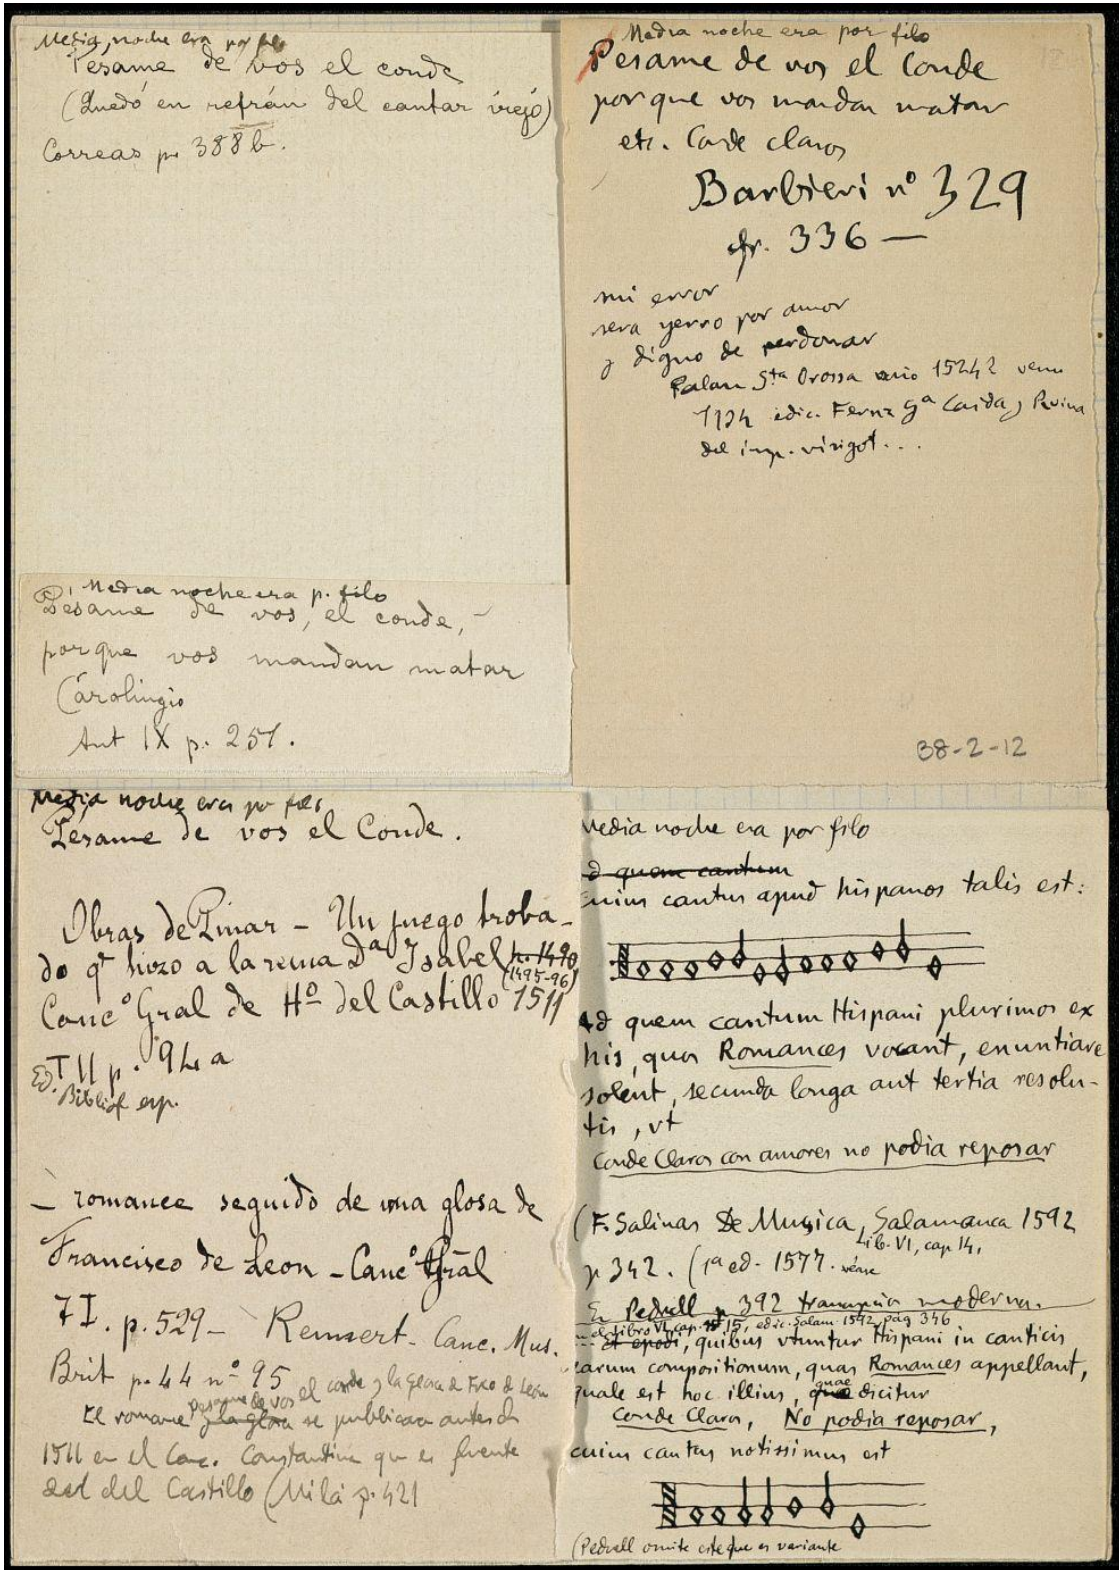 Media noche era por filo
Pésame de vos el conde
(Quedó en refrán del cantar viejo)
Correas p. 388 b.
Media noche era p. filo
Pésame de vos, el conde, -
porque vos mandan matar
Carolingio
Ant IX p. 251.
Media noche era por filo
Pesame de vos el Conde
porque vos mandan matar
etc. Conde claros
Barbieri nº 329
cfr. 336 —
mi error
sera yerro por amor
y digno de perdonar
Palau Sta Orosia 1524? 
1124 edic. Fernz Gª Caida y Ruina
del imp. visigot...
38-2-12
Media noche era por filo
Pésame de vos el Conde.
Obras de Pinar - Un juego troba-
do q hizo a la reina Dª Isabel h. 1490
(1495-96)
Cancº Gral de Hº del Castillo 1511
Ed. T II p. 94 a
Bibliof esp.
- romance seguido de una glosa de
Francisco de Leon - Cancº Gral
T I. p. 529 - Rennert - Canc. Mus.
Brit p. 44 nº 95
pesame de vos el conde y la glosa de Fco de León
El romance y la glosa se publican antes de
1511 en el Canc. Constantina que es fuente
del del Castillo (Milá p. 421
Media noche era por filo
ad quem cantum
Cuius cantus apud hispanos talis est:
Ad quem cantum Hispani plurimos ex
his, quos Romances vocant, enuntiare
solent, secunda longa aut tertia resolu-
tis, vt
Conde Claros con amores no podia reposar
(F. Salinas De Musica, Salamanca 1592
Lib. VI, cap. 14,
p 342. (1ª ed. 1577. véase
En Pedrell p 392 moderna.
libro VI, cap. 15, edic. Salam. 1592, pág 346
... Et epodi, quibus vtuntur Hispani in canticis
earum compositionum, quas Romances appellant,
quale est hoc illius, quae dicitur
Conde Claros, No podia reposar,
cuius cantus notissimus est
(Pedrell omite este que es variante